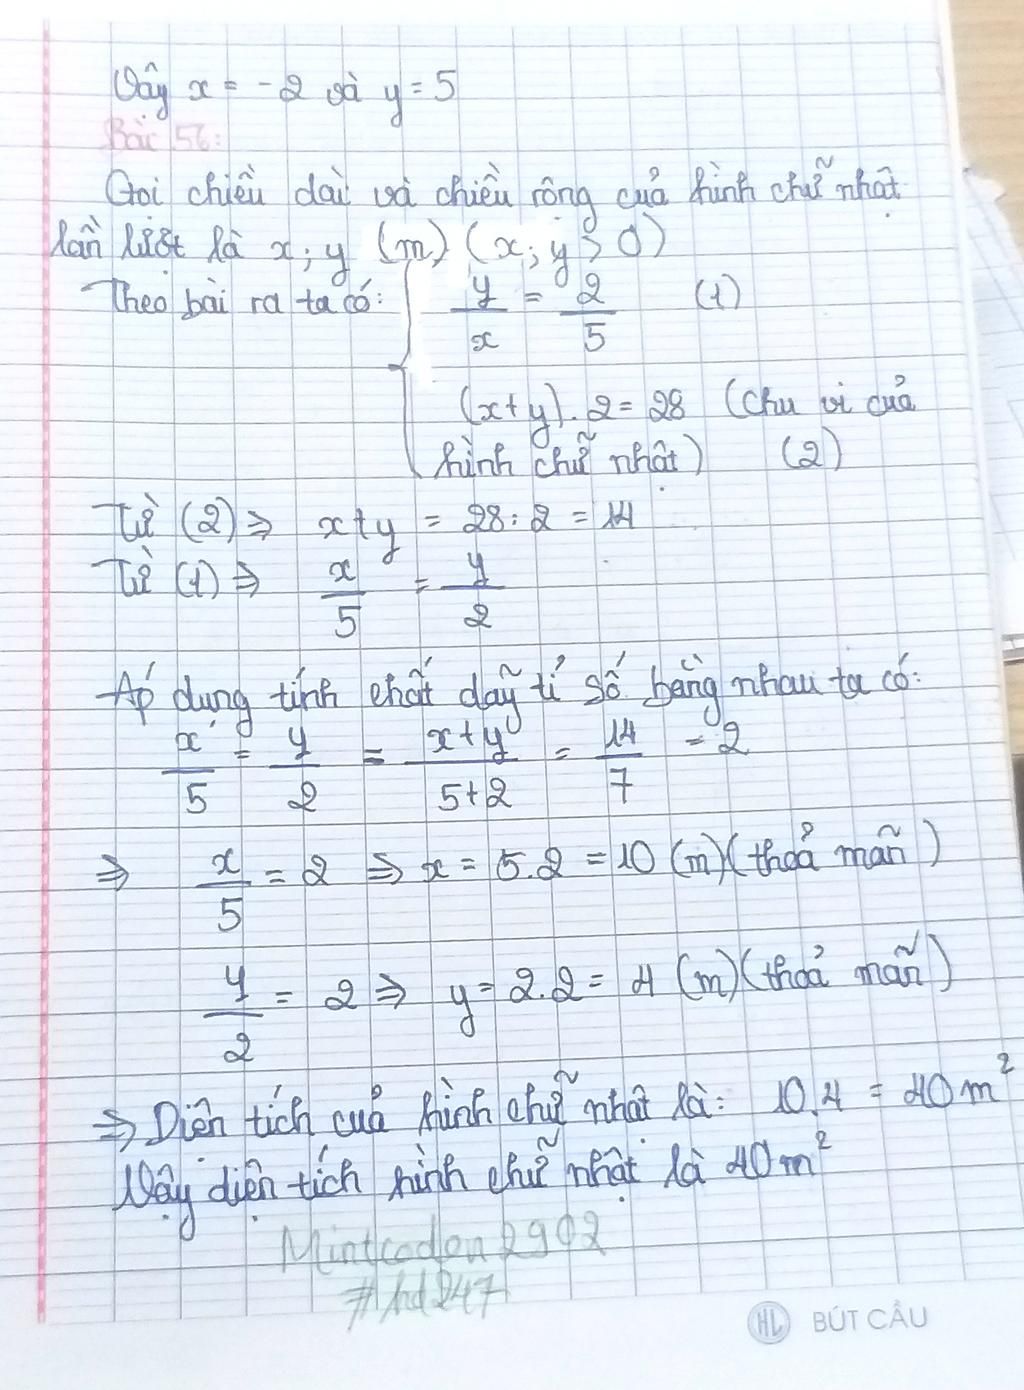 Vậy x = -2 và y = 5
Bài 56:
Gọi chiều dài và chiều rộng của hình chữ nhật
lần lượt là x; y (m) (x; y > 0)
Theo bài ra ta có: { y/x = 2/5 (1)
(x+y).2 = 28 (chu vi của
hình chữ nhật) (2)
Từ (2) => x+y = 28:2 = 14
Từ (1) => x/5 = y/2
Áp dụng tính chất dãy tỉ số bằng nhau ta có:
x/5 = y/2 = x+y/5+2 = 14/7 = 2
=> x/5 = 2 => x = 5.2 = 10 (m) (thoả mãn)
y/2 = 2 => y = 2.2 = 4 (m) (thoả mãn)
=> Diện tích của hình chữ nhật là: 10.4 = 40m²
Vậy diện tích hình chữ nhật là 40m²
2902
#hd247
HL BÚT CẦU